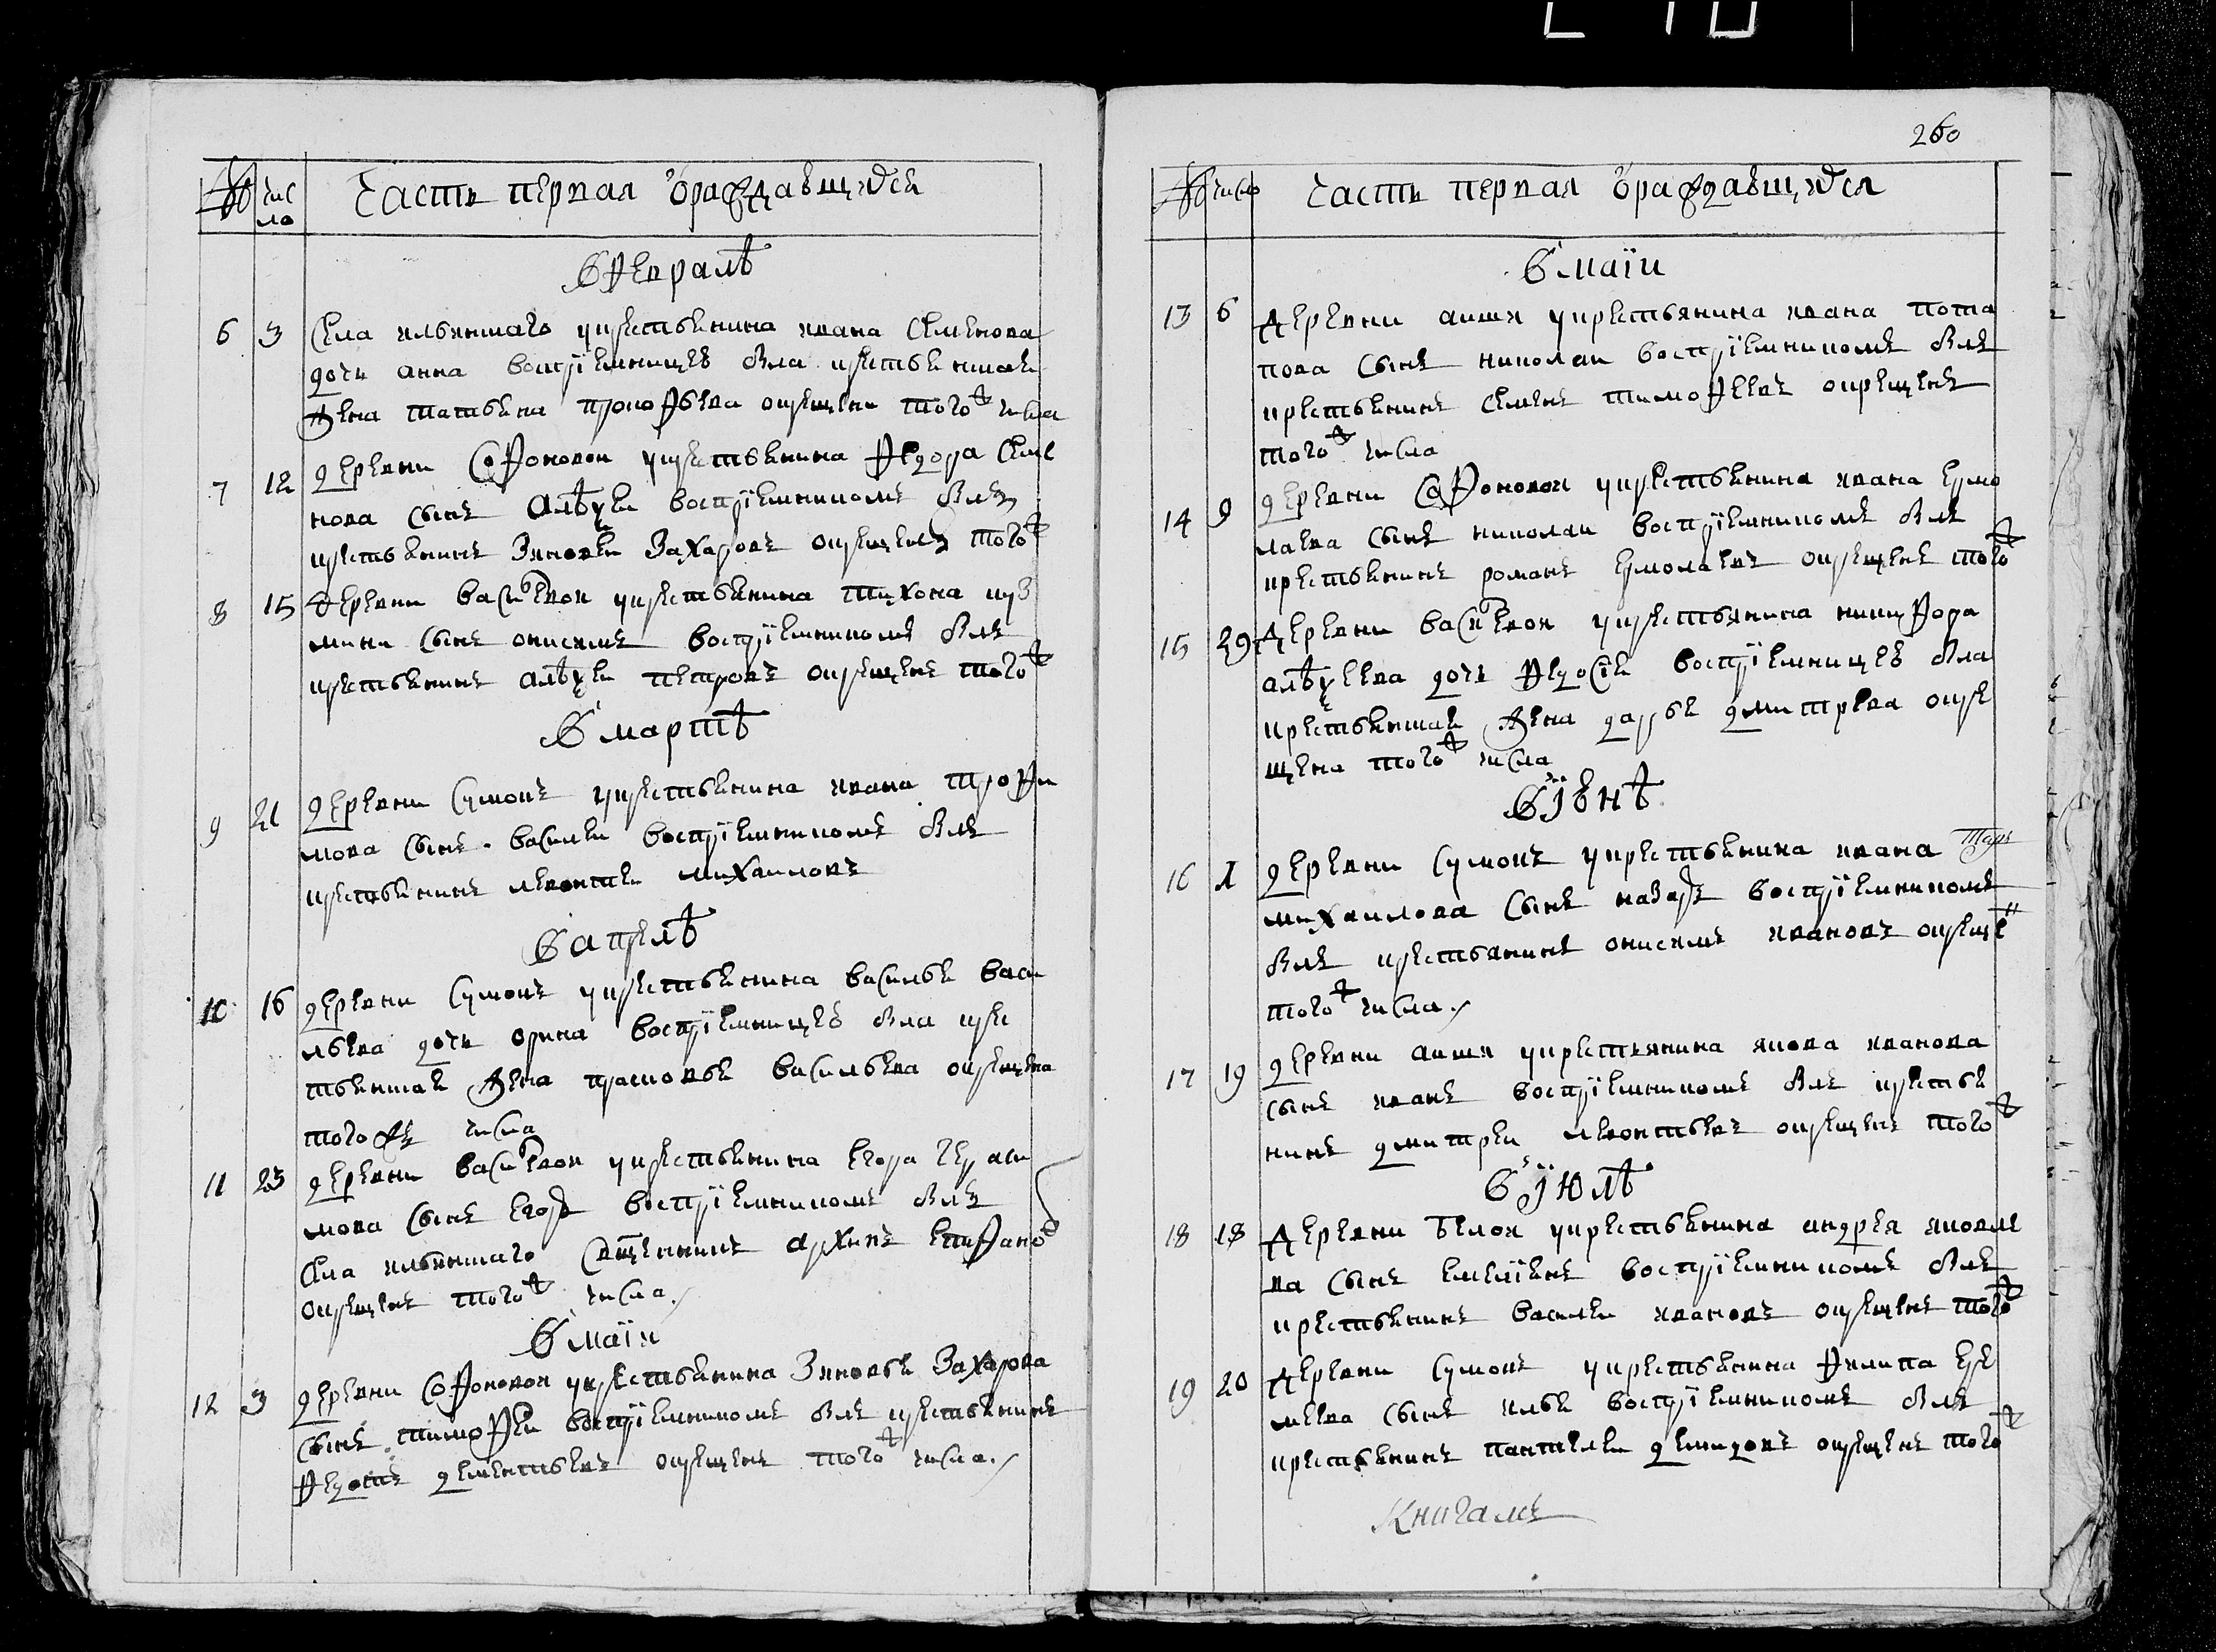 № чис
ло
Часть первая ѡраждающихся
В феврале
6 3 Села ильинского укрестьянина ивана Семенова
дочь анна восприемницею была крестьянская
жена татьяна прокофьева окрещена того ж числа
7 12 деревни Софоновой укрестьянина федора Семе
нова сынъ алѣѯеи восприемникомъ былъ
крестьянинъ Зиновеи Захаровъ окрещенъ того ж
8 15 деревни Васильевои укрестьянина тихона куз
мина сынъ онисимъ восприемникомъ былъ
крестьянинъ алѣѯеи петровъ окрещенъ того ж
В мартѣ
9 21 деревни Сумокъ укрестьянина ивана трофи
мова сынъ василеи восприемникомъ былъ
крестьянинъ левонтеи михаиловъ
В апрелѣ
10 16 деревни Сумокъ укрестьянина василья васи
льева дочь орина восприемницею была крес
тьянская жена прасковья васильева окрещена
того же числа
11 23 деревни Васильевои укрестьянина егора гераси
мова сынъ егоръ восприемникомъ былъ
Села ильинского священникъ архипъ епифановъ
окрещенъ того ж числа
В маїи
12 3 деревни Софоновои укрестьянина Зиновья Захарова
сынъ тимофеи восприемникомъ былъ крестьянинъ
федотъ дементьевъ окрещенъ того ж числа
260
№ число
Часть первая ѡраждающихся
В маїи
13 6 деревни укрестьянина ивана пота
пова сынъ николаи воспрїемникомъ былъ
крестьянинъ Семенъ тимофеевъ окрещенъ
того ж числа
14 9 деревни Софоновои укрестьянина ивана ермо
лаева сынъ николаи воспрїемникомъ былъ
крестьянинъ романъ ермолаевъ окрещенъ того ж
15 29 деревни Васильевои укрестьянина никифора
алѣѯеева дочь федосїя воспрїемницею была
крестьянская жена дарья дмитрева окре
щена того ж числа
В їюнѣ
16 1 деревни Сумокъ укрестьянина ивана
михаилова сынъ назаръ воспрїемникомъ
былъ крестьянинъ онисимъ ивановъ окреще
того ж числа
17 19 деревни укрестьянина якова иванова
сынъ иванъ воспрїемникомъ былъ крестья
нинъ дмитреи левонтьевъ окрещенъ того ж
В їюлѣ
18 18 деревни Белои укрестьянина андрея яковле
ва сынъ емелїянъ воспрїемникомъ былъ
крестьянинъ василеи ивановъ окрещенъ того ж
19 20 деревни Сумокъ укрестьянина филипа ере
меева сынъ илья воспрїемникомъ былъ
крестьянинъ пантелеи демидовъ окрещенъ того ж
Книгамъ